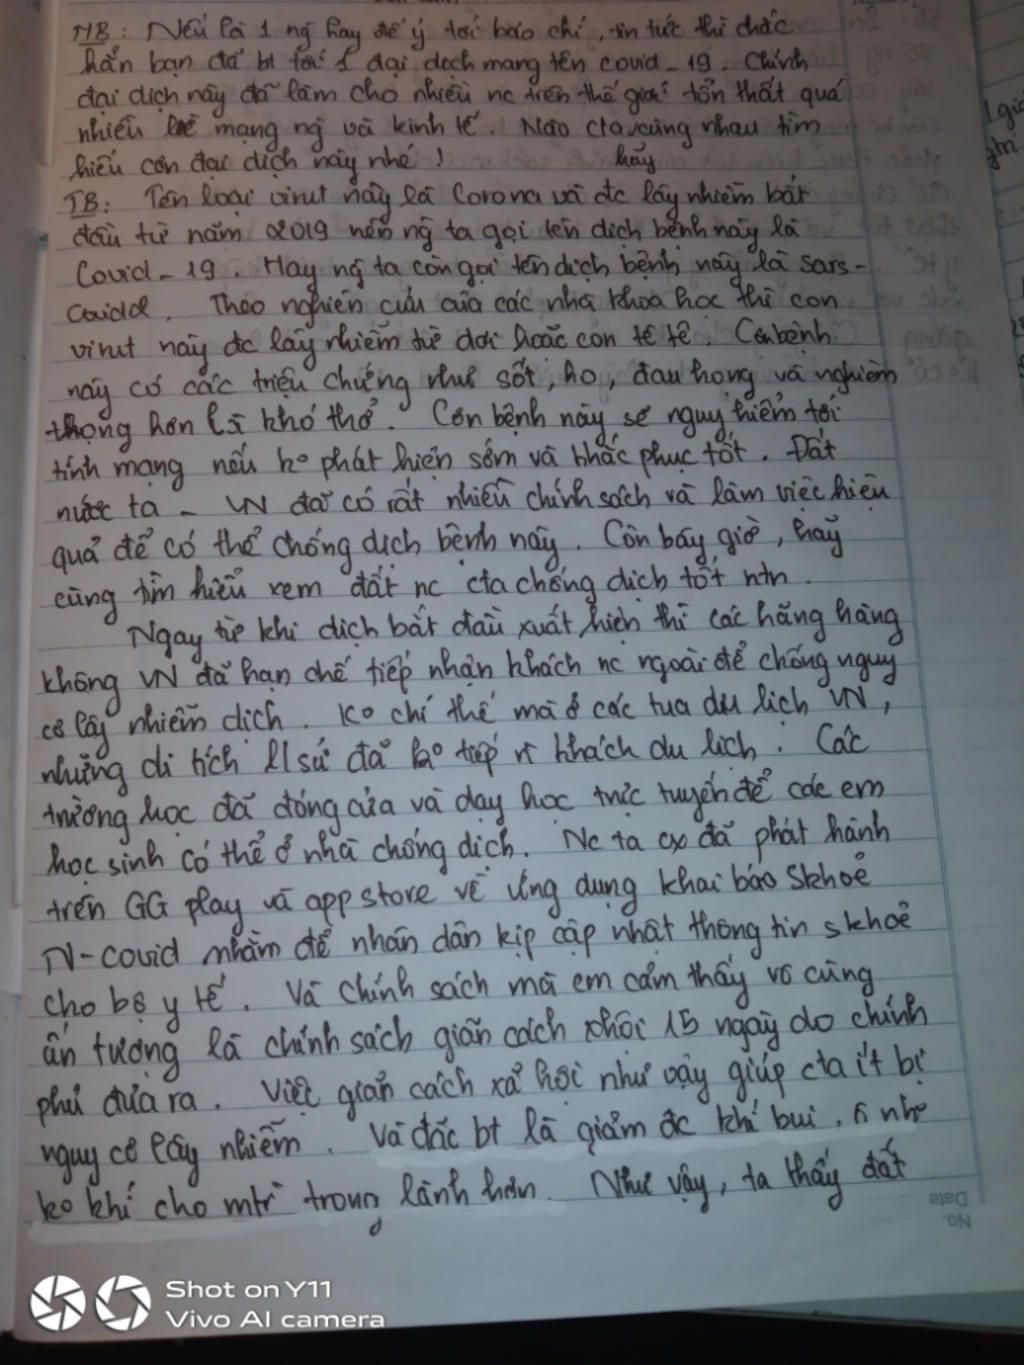 MB: Nếu là 1 ng hay để ý tới báo chí, tin tức thì chắc
hẳn bạn đã bt tới 1 đại dịch mang tên covid_19. Chính
đại dịch này đã làm cho nhiều nc trên thế giới tổn thất quá
nhiều về mạng ng và kinh tế. Nào cta cùng nhau tìm
hãy
hiểu cơn đại dịch này nhé!
TB: Tên loại virut này là Corona và đc lây nhiễm bắt
đầu từ năm 2019 nên ng ta gọi tên dịch bệnh này là
Covid_19. Hay ng ta còn gọi tên dịch bệnh này là sars-
. Theo nghiên cứu của các nhà khoa học thì con
virut này đc lây nhiễm từ dơi hoặc con tê tê. Cơn bệnh
này có các triệu chứng như sốt, ho, đau họng và nghiêm
trọng hơn là khó thở. Cơn bệnh này sẽ nguy hiểm tới
tính mạng nếu ko phát hiện sớm và khắc phục tốt. Đất
nước ta - VN đã có rất nhiều chính sách và làm việc hiệu
quả để có thể chống dịch bệnh này. Còn bây giờ, hãy
cùng tìm hiểu xem đất nc cta chống dịch tốt ntn.
Ngay từ khi dịch bắt đầu xuất hiện thì các hãng hàng
không VN đã hạn chế tiếp nhận khách nc ngoài để chống nguy
cơ lây nhiễm dịch. Ko chỉ thế mà ở các tua du lịch VN,
những di tích lsử đã ko tiếp khách du lịch. Các
trường học đã đóng cửa và dạy học trực tuyến để các em
học sinh có thể ở nhà chống dịch. Nc ta cx đã phát hành
trên GG play và app store về ứng dụng khai báo skhoẻ
N-covid nhằm để nhân dân kịp cập nhật thông tin skhoẻ
cho bộ y tế. Và chính sách mà em cảm thấy vô cùng
ấn tượng là chính sách giãn cách xhội 15 ngày do chính
phủ đưa ra. Việc giãn cách xã hội như vậy giúp cta ít bị
nguy cơ lây nhiễm. Và đặc bt là giảm đc khí bụi, ô nh
ko khí cho mtr trong lành hơn. Như vậy, ta thấy đất
Date
No.
Shot on Y11
Vivo AI camera